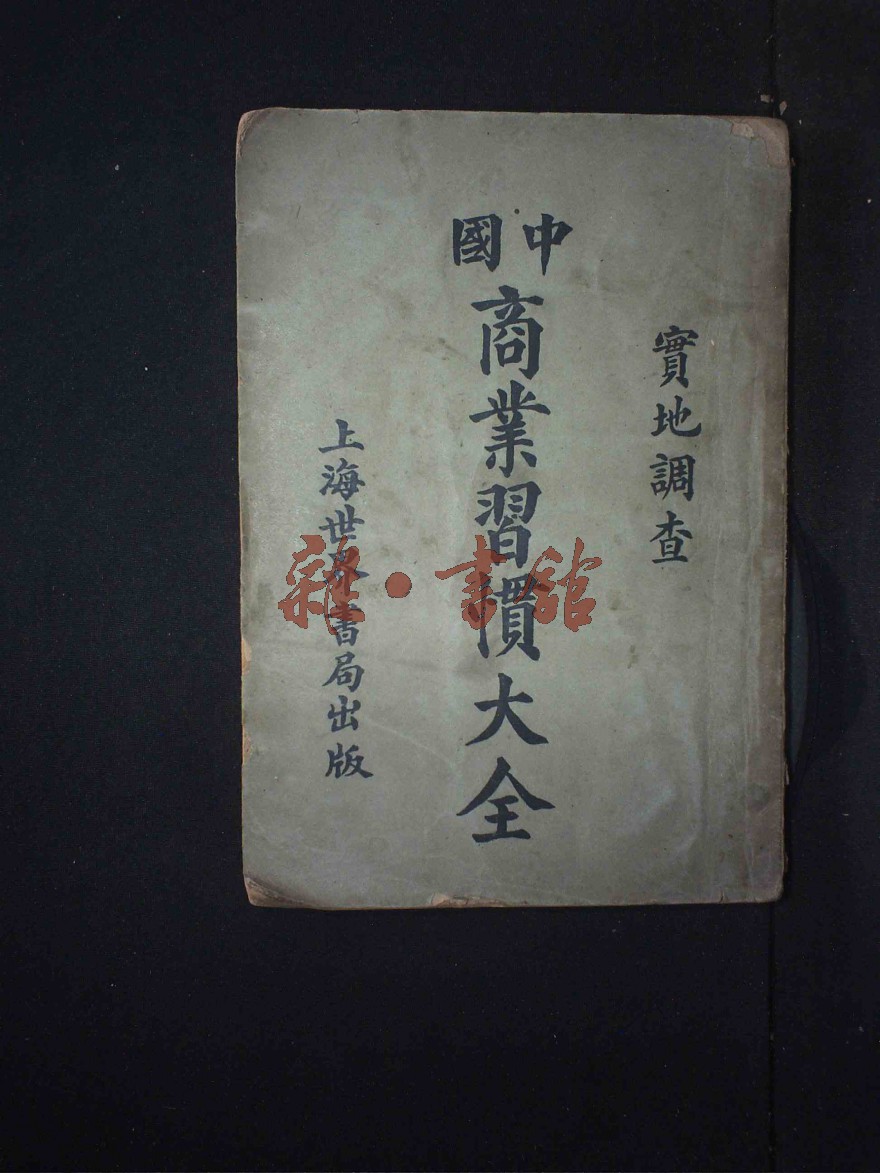 實地調查
中國
商業習慣大全
上海世界書局出版
雜·書館